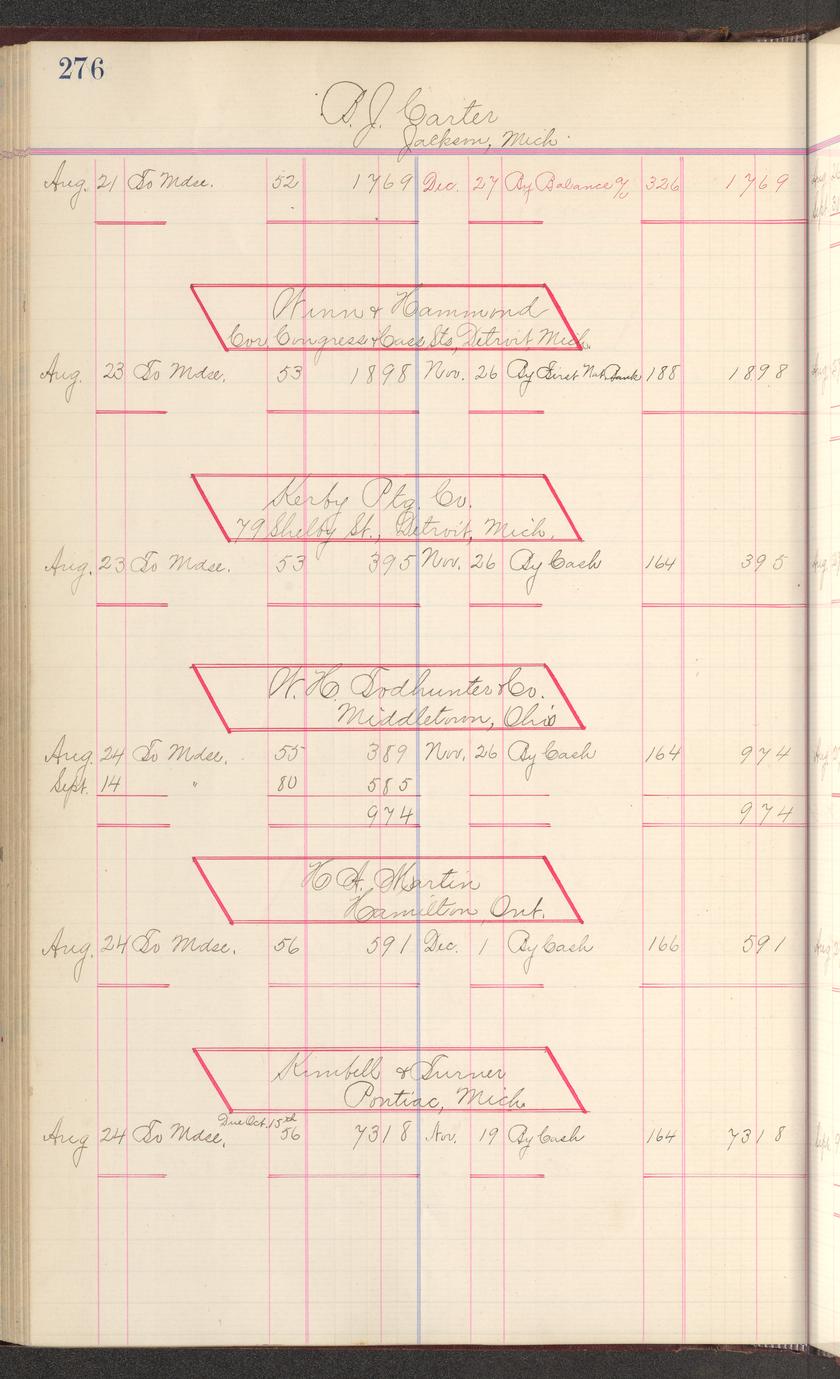 276
B. J. Carter
Jackson, Mich
Aug. 21 To Mdse. 52 1769 Dec. 27 By Balance a/c 326 1769
Winn & Hammond
Cor. Congress & Cass Sts, Detroit Mich.
Aug. 23 To Mdse. 53 1898 Nov. 26 By First Nat. Bank 188 1898
Kerby Ptg. Co.
79 Shelby St., Detroit, Mich.
Aug. 23 To Mdse. 53 395 Nov. 26 By Cash 164 395
W. H. Todhunter & Co.
Middletown, Ohio
Aug. 24 To Mdse. 55 389 Nov. 26 By Cash 164 974
Sept. 14 " 80 585
974 974
H. A. Martin
Hamilton, Ont.
Aug. 24 To Mdse. 56 591 Dec. 1 By Cash 166 591
Kimbell & Turner
Pontiac, Mich.
Due Oct. 15th
Aug 24 To Mdse. 56 7318 Nov. 19 By Cash 164 7318